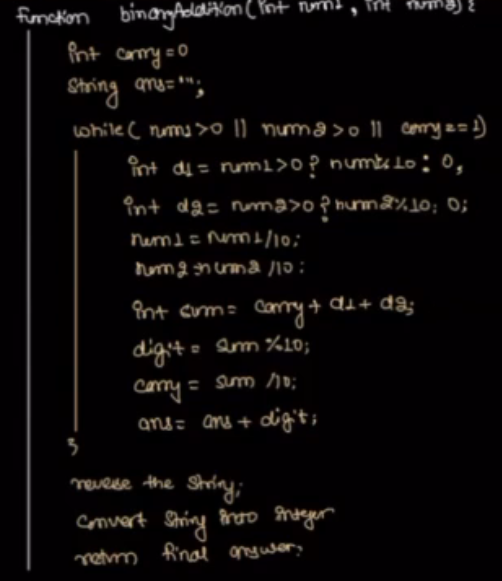 function binaryAddition(int num1, int num2){
int carry=0
String ans="";
while( num1>0 || num2>0 || carry==1)
int d1= num1>0? num1%10: 0,
int d2= num2>0? num2%10: 0;
num1= num1/10;
num2=num2/10:
int sum= carry+ d1+ d2;
digit= sum%10;
carry= sum /10;
ans= ans+digit;
}
reverse the string;
convert string into integer
return final answer;